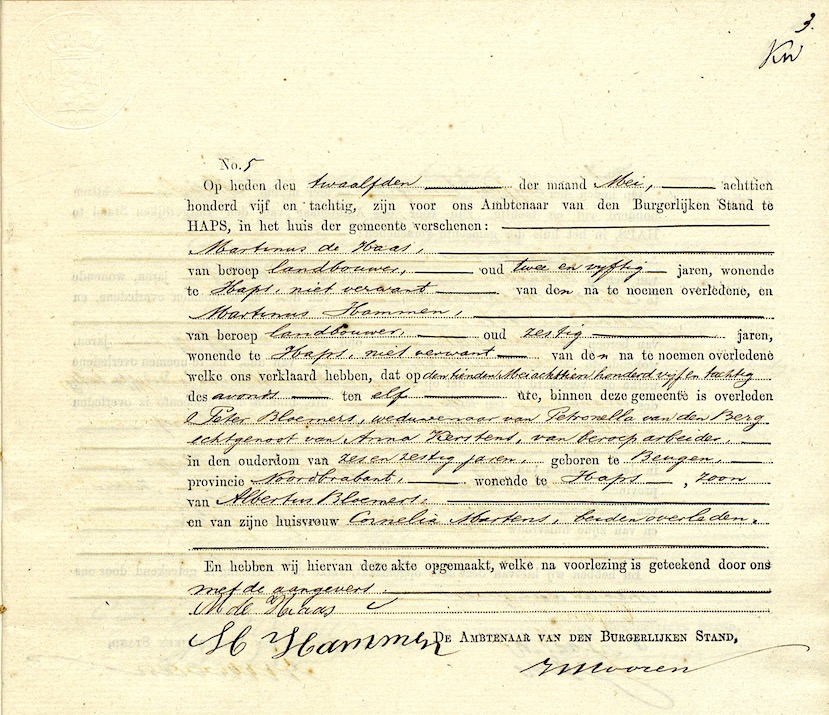 3.
KW
No. 5
Op heden den twaalfden der maand Mei, achttien
honderd vijf en tachtig, zijn voor ons Ambtenaar van den Burgerlijken Stand te
HAPS, in het huis der gemeente verschenen:
Martinus de Haas,
van beroep landbouwer, oud twee en vyftig jaren, wonende
te Haps, niet verwant van den na te noemen overledene, en
Martinus Hammen,
van beroep landbouwer, oud zestig jaren,
wonende te Haps, niet verwant van den na te noemen overledene
welke ons verklaard hebben, dat op den tienden Mei achttien honderd vyf en tachtig
des avonds ten elf ure, binnen deze gemeente is overleden
Peter Bloemers, weduwenaar van Petronella van den Berg
echtgenoot van Anna Kerstens, van beroep arbeider,
in den ouderdom van zes en zestig jaren, geboren te Beugen,
provincie Noordbrabant, wonende te Haps, zoon
van Albertus Bloemers,
en van zijne huisvrouw Cornelia Martens, beiden overleden.
En hebben wij hiervan deze akte opgemaakt, welke na voorlezing is geteekend door ons
met de aangevers.
M de Haas
M Hammen DE AMBTENAAR VAN DEN BURGERLIJKEN STAND,